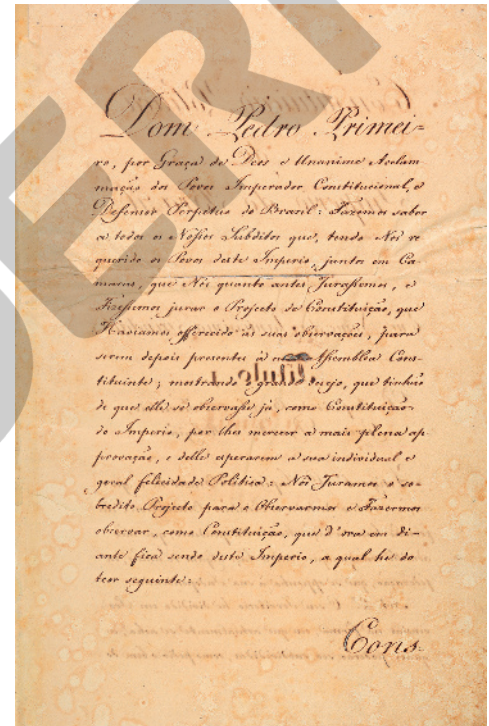 Dom Pedro Primei-
ro, por Graça de Deos e Unanime Acclam-
mação dos Povos Imperador Constitucional, e
Defensor Perpetuo do Brasil: Fazemos saber
a todos os Nossos Subditos que, tendo Nos re
querido os Povos deste Imperio, juntos em Ca-
maras, que Nós quanto antes Jurassemos, e
Fizessemos jurar o Projecto de Constituição, que
Haviamos offerecido ás suas observações, para
serem depois presentes á nova Assembléa Cons-
tituinte; mostrando o grande desejo, que tinhão
de que elle se observasse já, como Constituição
do Imperio, por lhes merecer a mais plena ap
provação, e delle esperarem a sua individual e
geral felicidade Politica: Nós Juramos o so-
bredito Projecto para o Observarmos e Fazermos
observar, como Constituição, que d'ora em di-
ante fica sendo deste Imperio, a qual he do
teor seguinte:
Cons-